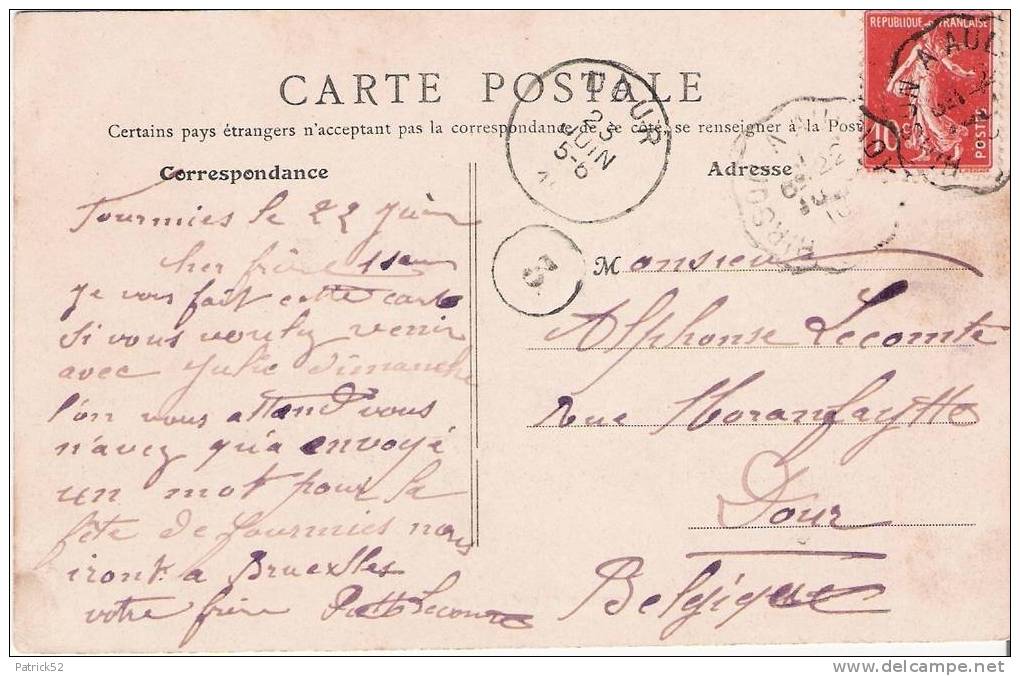 CARTE POSTALE
Certains pays étrangers n'acceptant pas la correspondance de ce côté, se renseigner à la Poste
Correspondance
Adresse
RÉPUBLIQUE FRANÇAISE
10c
POSTES
DOUR
23
JUIN
5-6
HIRSON A AUL
22
5
Fourmies le 22 Juin
cher frère
Je vous fait cette carte
si vous voulez venir
avec Julie Dimanche
l'on vous attend vous
n'avez qu'a envoyé
un mot pour la
fête de Fourmies nous
iront a Bruexlles
votre frère Lecomte
Monsieur
Alphonse Lecomte
Rue Moranfaytte
Dour
Belgique
Patrick52
delcampe.net